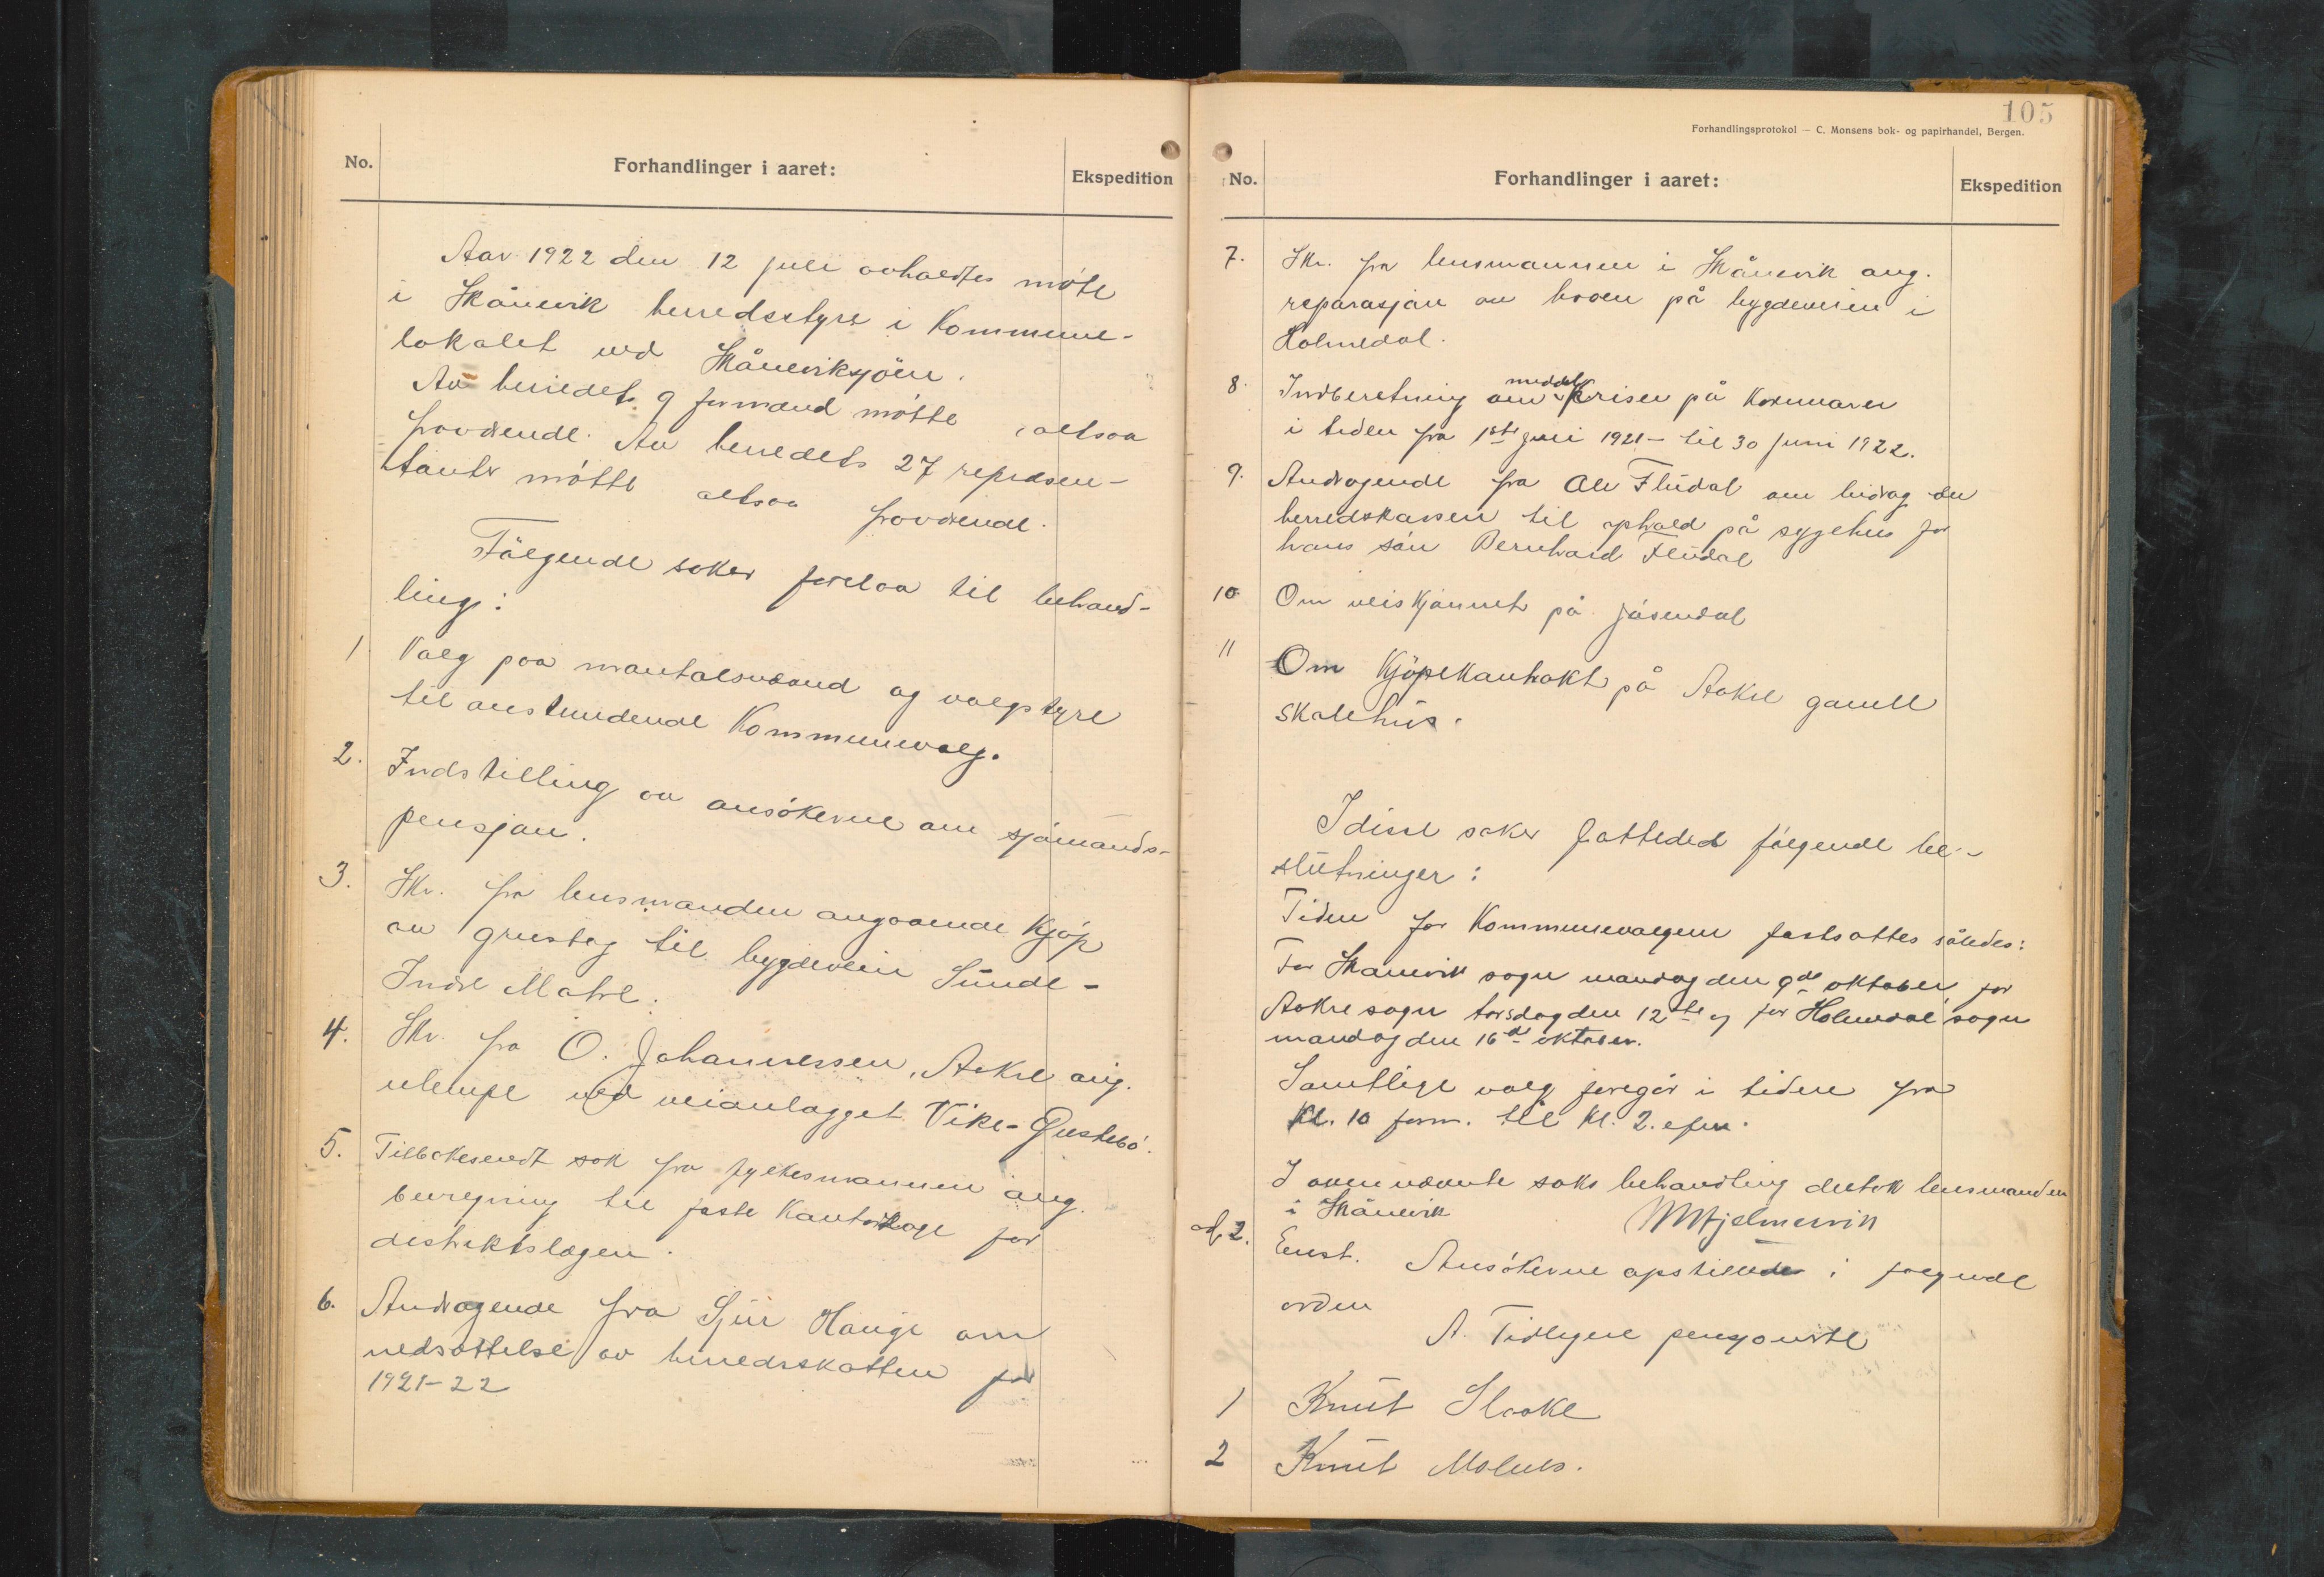 No.
Forhandlinger i aaret:
Ekspedition
Aar 1922 den 12 juli avholdtes møte
i Skånevik herredsstyre i Kommune-
lokalet ved Skåneviksjøen.
Av herredets 9 formænd møtte , altsaa
fraværende. Av herredets 27 repræsen-
tanter møtte altsaa fraværende.
Følgende saker forelaa til behand-
ling:
1 Valg paa mantalsmænd og valgstyre
til anstundende Kommunevalg.
2. Indstilling av ansøkerne om sjømands-
pensjon.
3. Skr. fra lensmanden angaaende Kjøp
av grustag til bygdeveien Sunde-
Indre Matre.
4. Skr. fra O. Johannessen, Aakre ang.
ulempe ved veianlægget Vike-Gustebø.
5. Tilbakesendt sak fra fylkesmannen ang.
beregning til faste Kontordage for
distriktslægen.
6. Andragende fra Sjur Hauge om
nedsættelse av herredsskatten for
1921-22
105
Forhandlingsprotokol — C. Monsens bok- og papirhandel, Bergen.
No.
Forhandlinger i aaret:
Ekspedition
7. Skr. fra lensmannen i Skånevik ang.
reparasjon av broen på bygdeveien i
Holmedal.
8. Indberetning om middelprisen på Kornvarer
i tiden fra 1ste juli 1921 - til 30 juni 1922.
9. Andragende fra Ole Fludal om bidrag av
herredskassen til ophold på sygehus for
hans søn Bernhard Fludal
10 Om veiskjønnet på Jøsendal
11 Om Kjøpekontrakt på Aakre gamle
skolehus.
I disse saker fattedes følgende be-
slutninger:
Tiden for Kommunevalgene fastsattes således:
For Skånevik sogn mandag den 9de oktober, for
Aakre sogn torsdag den 12te og for Holmedal sogn
mandag den 16de oktober.
Samtlige valg foregår i tiden fra
Kl. 10 form. til Kl. 2. efm.
I ovennævnte saks behandling deltok lensmanden
i Skånevik MMjelmervik
ad 2. Enst. Ansøkerne opstilledes i følgende
orden
A. Tidligere pensjonerte
1 Knut Slaake
2 Knut Molnes.